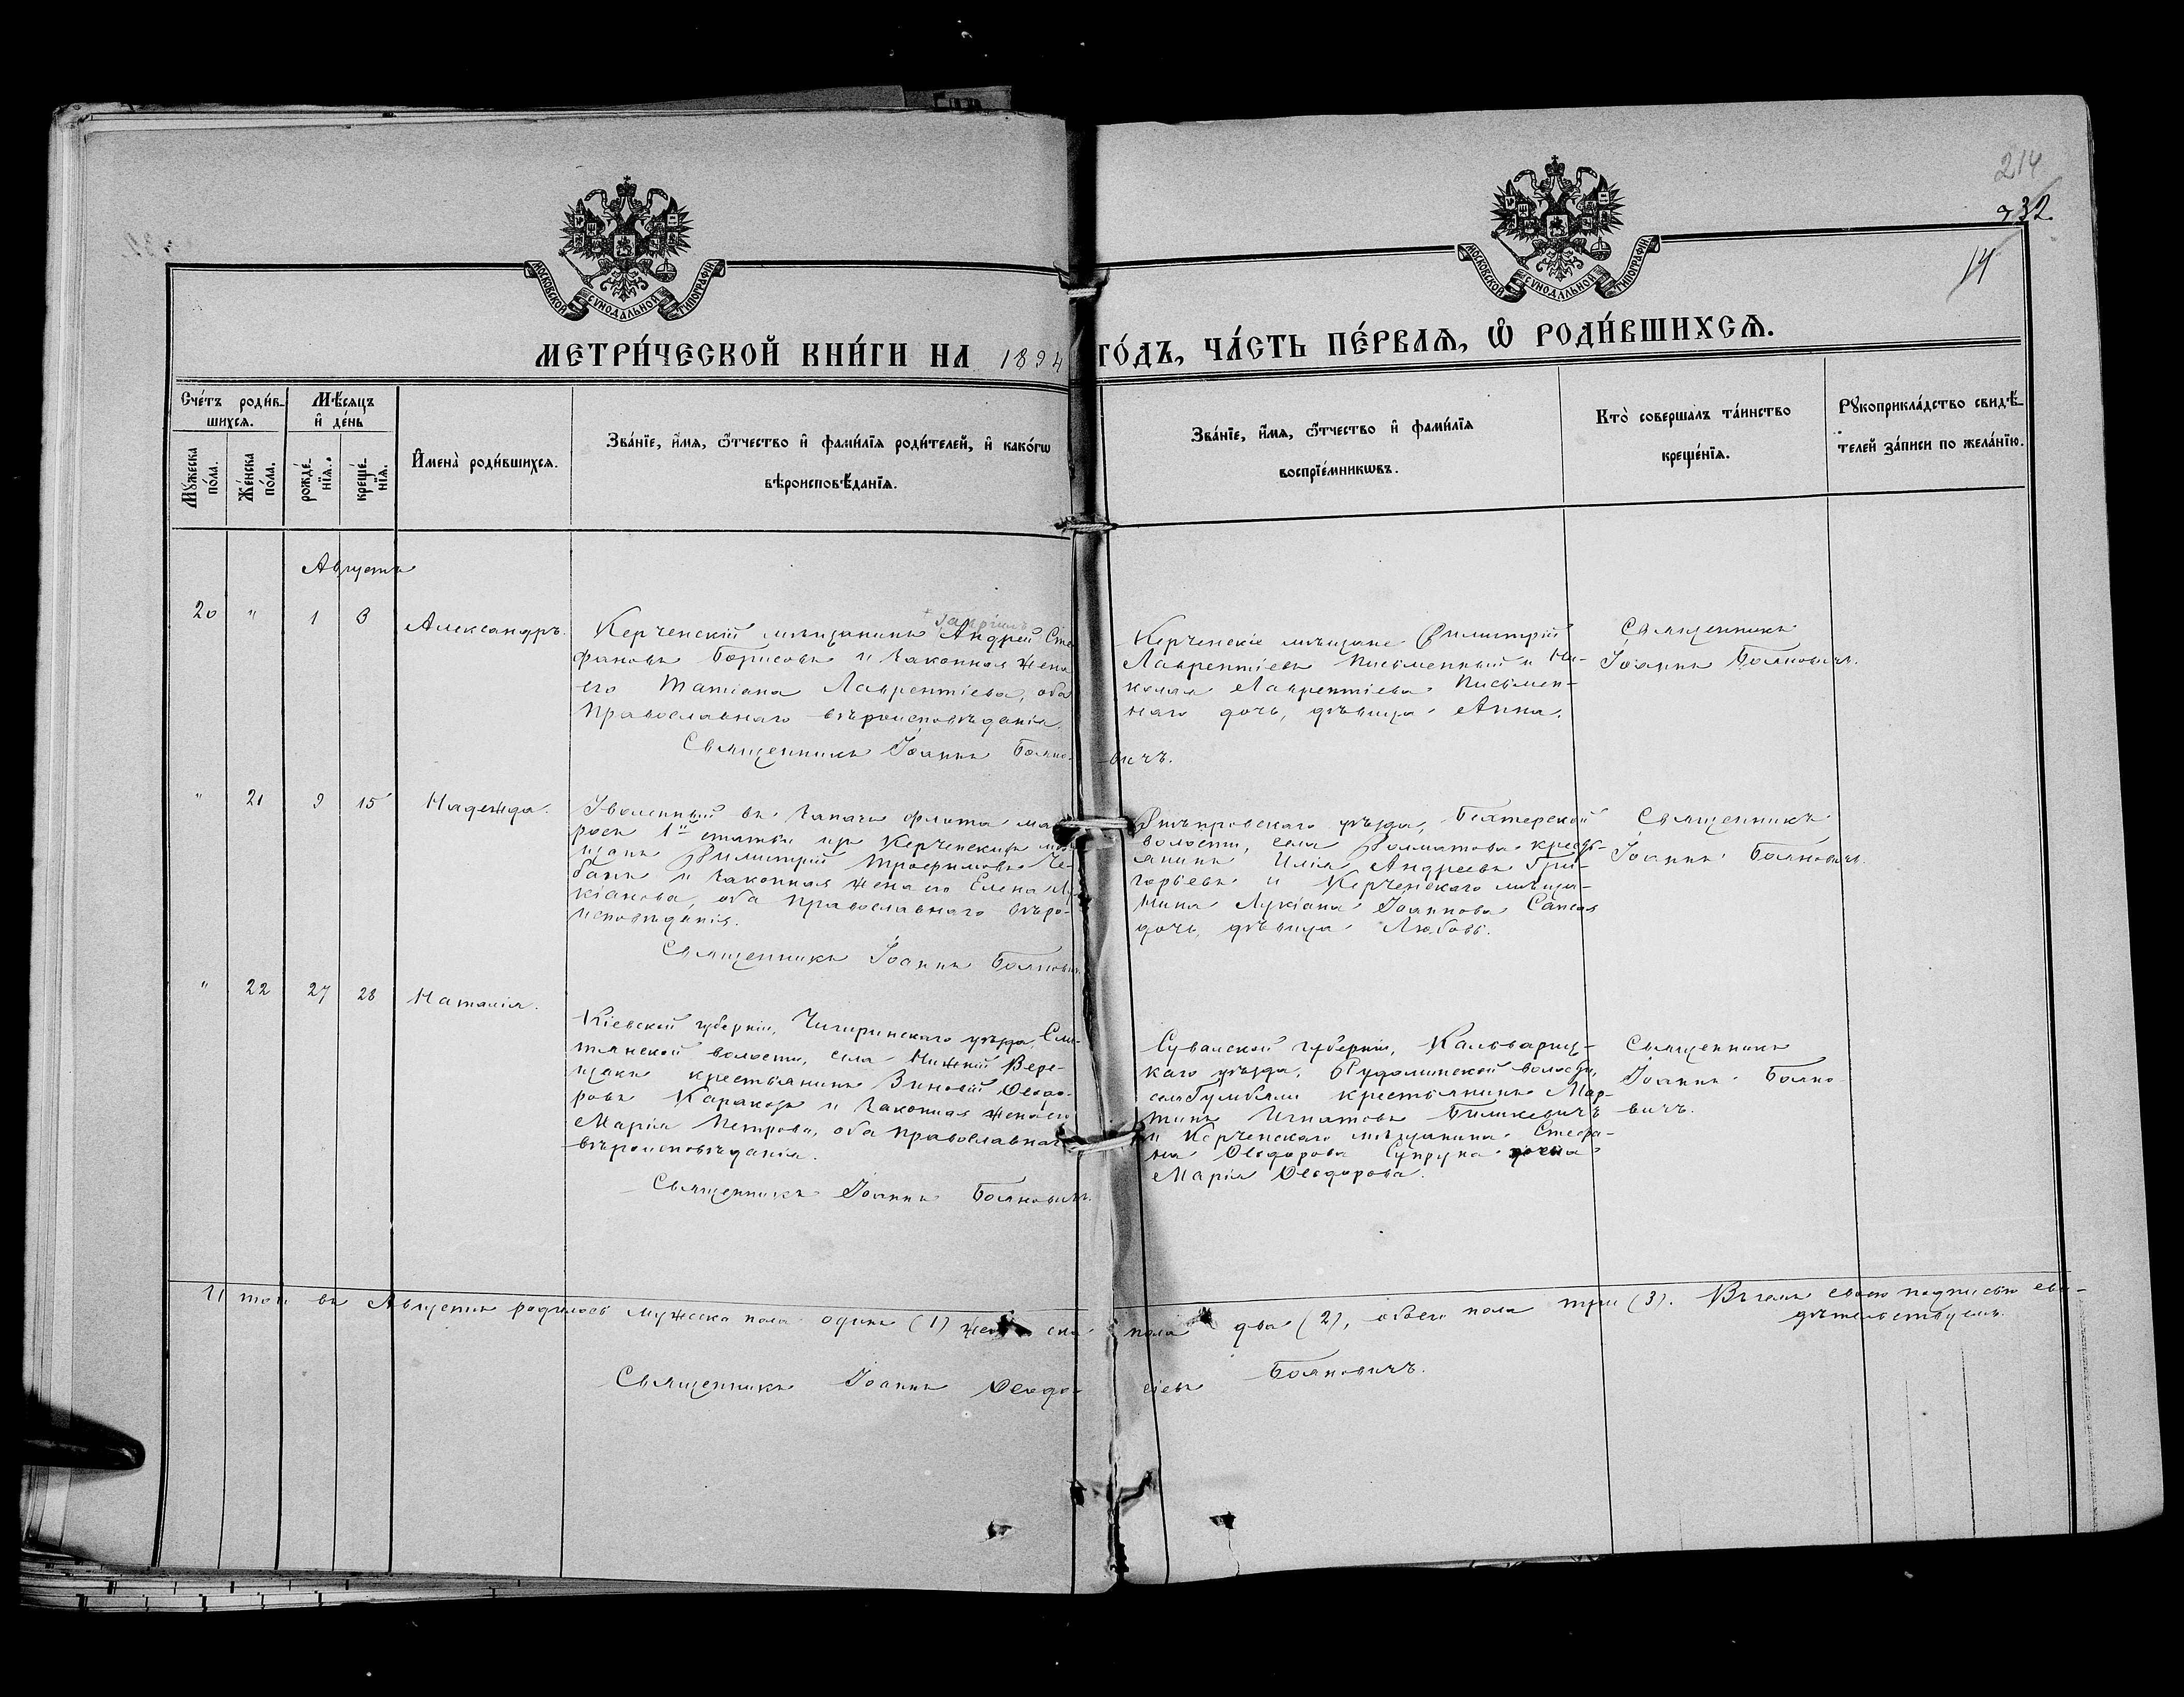 214
232.
14
МОСКОВСКОЙ СѴНОДАЛЬНОЙ ТИПОГРАФІИ
МОСКОВСКОЙ СѴНОДАЛЬНОЙ ТИПОГРАФІИ
МЕТРИ́ЧЕСКОЙ КНИ́ГИ НА 1894 ГО́ДЪ, ЧА́СТЬ ПЕ́РВАѦ, Ѡ РОДИ́ВШИХСѦ.
Сче́тъ роди́в-
шихсѧ.
Мꙋ́жеска по́ла.
Же́нска по́ла.
Мѣ́сѧцъ
и де́нь
рожде́-нїѧ.
креще́-нїѧ.
Имена̀ роди́вшихсѧ.
Зва́нїе, и́мѧ, ѻ́тчество и фами́лїѧ роди́телей, и како́гѡ
вѣроисповѣ́данїѧ.
Зва́нїе, и́мѧ, ѻ́тчество и фами́лїѧ
воспрїе́мникѡвъ.
Кто̀ соверша́лъ та́инство
креще́нїѧ.
Рꙋкоприкла́дство свидѣ́-
телей за́писи по жела́нїю.
Августъ
20 " 1 3 Александръ.
Керченскій мѣщанинъ Андрей Сте-
фановъ Борисовъ и законная жена
его Татіана Лаврентіева, оба
православнаго вѣроисповѣданія.
Священникъ Іоаннъ Бояно-
вичъ.
Керченскіе мѣщане Димитрій
Лаврентіевъ Письменный и Ни-
колая Лаврентіева Письмен-
наго дочь, дѣвица Анна.
Священникъ
Іоаннъ Бояновичъ.
" 21 9 15 Надежда.
Уволенный въ запасъ флота мат-
росъ 1й статьи изъ Керченскихъ мѣ-
щанъ Димитрій Трофимовъ Че-
банъ и законная жена его Елена Лу-
кіанова, оба православнаго вѣро-
исповѣданія.
Священникъ Іоаннъ Бояновичъ
Днѣпровскаго уѣзда, Бехтерской
волости, села Долматова кресть-
янинъ Илія Андреевъ Гри-
горьевъ и Керченскаго мѣща-
нина Лукіана Іоаннова
дочь, дѣвица Любовь.
Священникъ
Іоаннъ Бояновичъ.
" 22 27 28 Наталія.
Кіевской губерніи, Чигиринскаго уѣзда, Сми-
тянской волости, села Нижній Вере-
щаки крестьянинъ Зиновій Ѳеодо-
ровъ и законная жена его
Марія Петрова, оба православнаго
вѣроисповѣданія.
Священникъ Іоаннъ Бояновичъ.
Сувалской губерніи, Кальварій-
каго уѣзда, волости,
села крестьянинъ Мар-
тинъ Игнатовъ
и Керченскаго мѣщанина Стефа-
на Ѳеодорова Супруна
Марія Ѳеодорова.
Священникъ
Іоаннъ Бояно-
вичъ.
Итого въ Августѣ родилось мужеска пола одинъ (1) женска пола два (2), обоего пола три (3). Въ чемъ своею подписью сви-
дѣтельствуемъ.
Священникъ Іоаннъ Ѳеодо- сіевъ Бояновичъ.